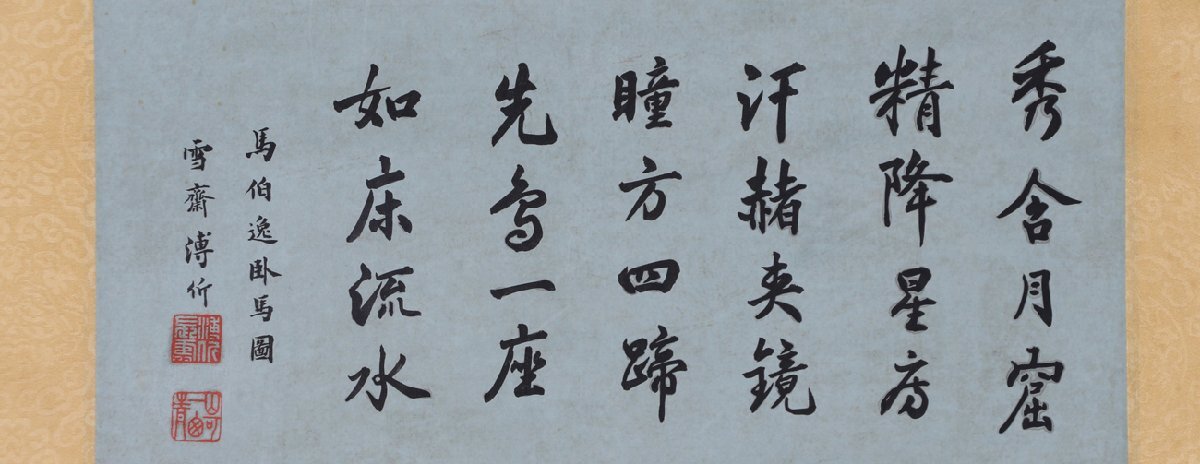 秀含月窟
精降星房
汗赭夹鏡
瞳方四蹄
先鳥一座
如床流水
馬伯逸卧馬圖
雪齋溥伒